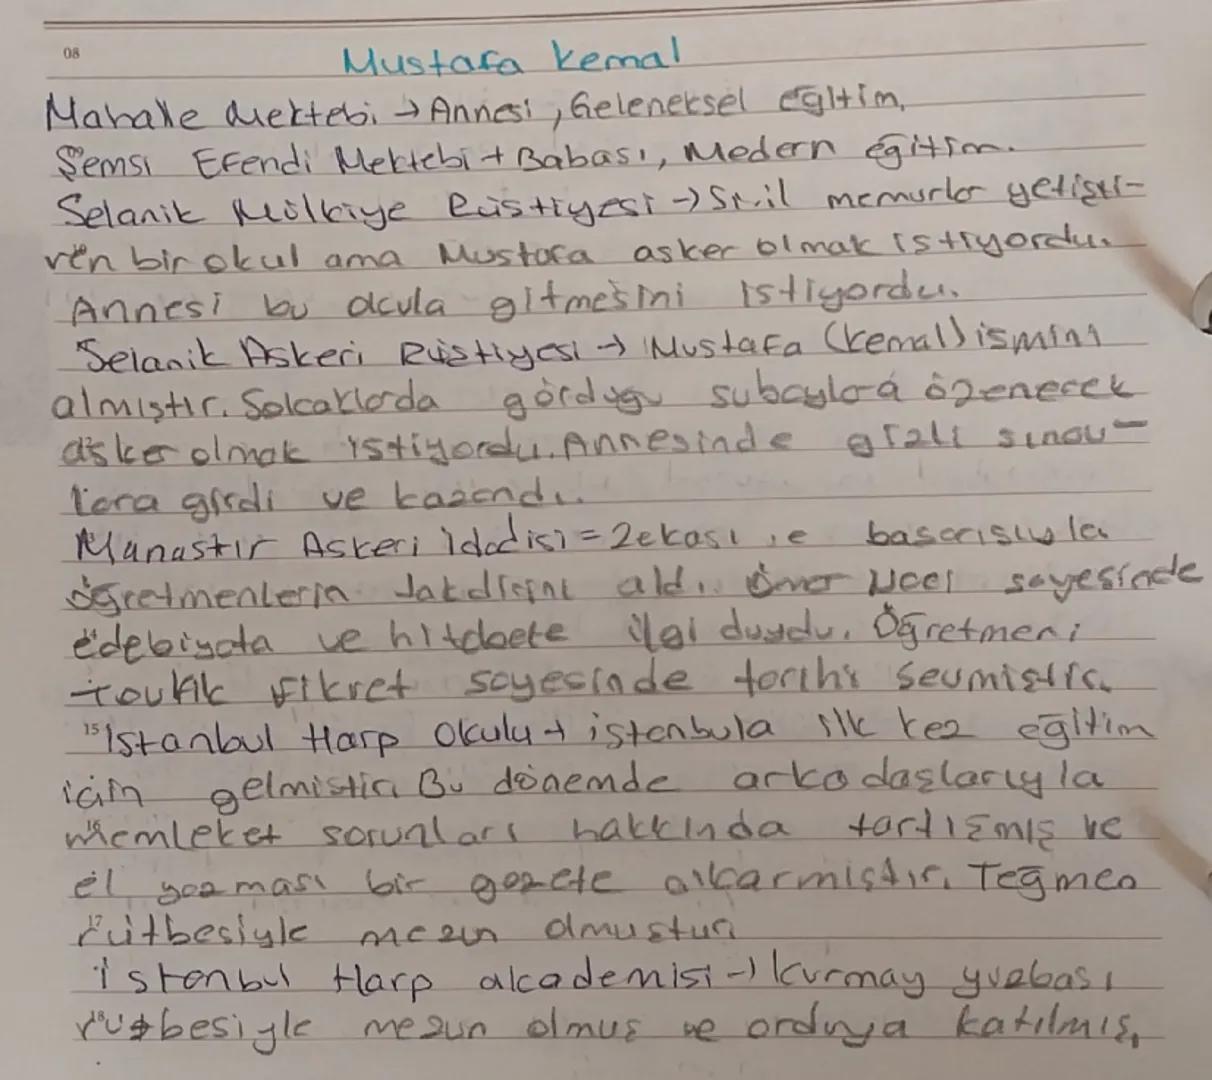 08
Mustafa Kemal
Mahalle Mektebi → Annesi, Geleneksel eğitim.
Şemsi Efendi Mektebi → Babası, Modern eğitim.
Selanik Mülkiye Rüştiyesi → Sivil memurlar yetişti-
ren bir okul ama Mustafa asker olmak istiyordu.
Annesi bu okula gitmesini istiyordu.
Selanik Askeri Rüştiyesi → Mustafa (Kemal) ismini
almıştır. Sokaklarda gördüğü subaylara özenerek
asker olmak istiyordu. Annesinde gizli sınav-
lara girdi ve kazandı.
Manastır Askeri İdadisi = Zekası ve başarısıyla
öğretmenlerin takdirini aldı. Ömer Naci sayesinde
edebiyata ve hitabete ilgi duydu. Öğretmeni
Tevfik Fikret sayesinde tarihi sevmiştir.
15 İstanbul Harp Okulu → istanbula ilk kez eğitim
için gelmiştir. Bu dönemde arkadaşlarıyla
16 memleket sorunları hakkında tartışmış ve
el yazması bir gazete çıkarmıştır. Teğmen
17 rütbesiyle mezun olmuştur.
İstanbul Harp akademisi → Kurmay yüzbaşı
18 rütbesiyle mezun olmuş ve orduya katılmış.